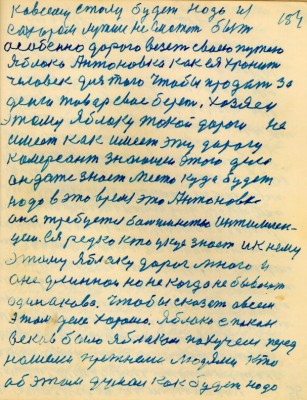 184
ко всему столу будет надо и
сахаром лучше не может быт
особенно дорого везет свою
яблоко Антоновка как ея хронит
человек для того чтобы продать за
деньги товар свое берет, хозяен
этому яблоку такой дороги не
имеет как имеет эту дорогу
комерсант знающи этого дела
он даже знает место куда будет
надо в это время это Антоновке
она требуется
цеи. Ея редко кто уже знает и к нему
этому яблоку дорог много и
оне длинной но не когда не бывают
одинакова. Чтобы сказат о всем
этом деле хорошо. Яблоко спакон
веков было яблоком пахучем перед
нашеми прежнеми людями кто
об этим думал как будет надо